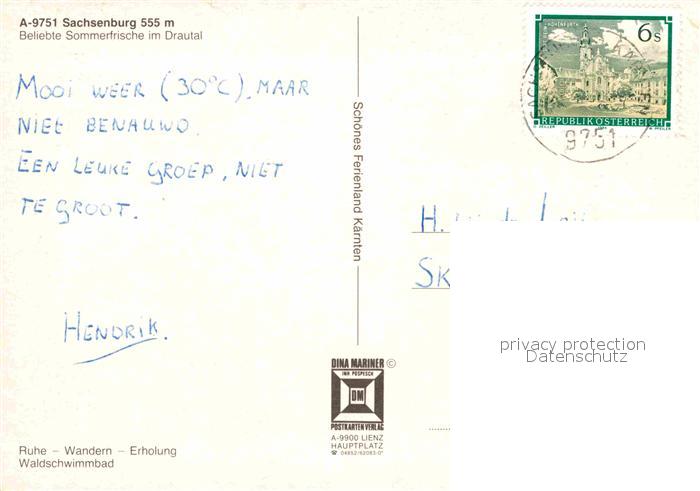 A-9751 Sachsenburg 555 m
Beliebte Sommerfrische im Drautal
MOOI WEER (30°C), MAAR
NIET BENAUWD.
EEN LEUKE GROEP, NIET
TE GROOT.
HENDRIK.
Ruhe – Wandern – Erholung
Waldschwimmbad
— Schönes Ferienland Kärnten —
DINA MARINER ©
INH POSPESCH
DM
POSTKARTENVERLAG
A-9900 LIENZ
HAUPTPLATZ
☎ 04852/62083-0*
6s
REPUBLIK ÖSTERREICH
9751
H.
SK
privacy protection
Datenschutz